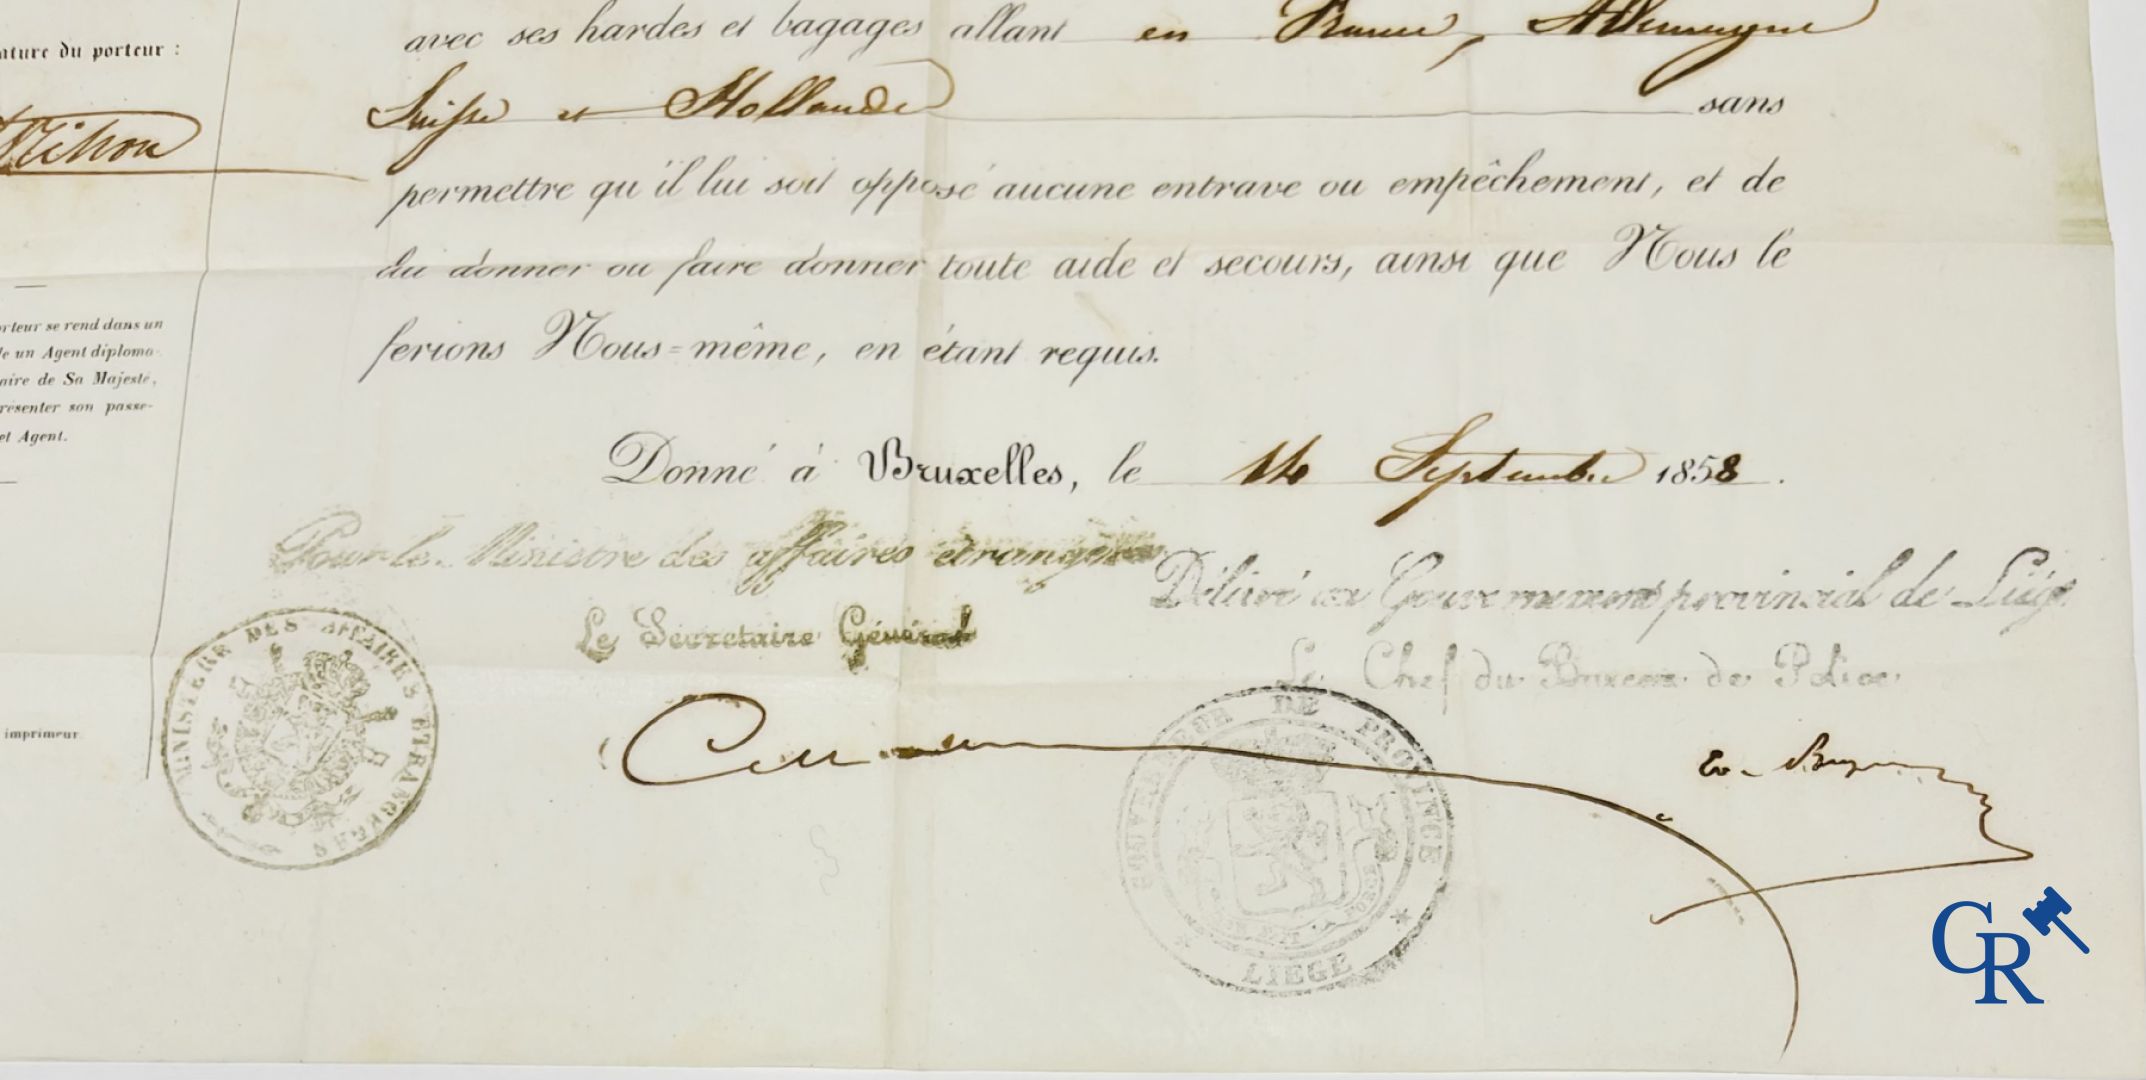 ature du porteur :
avec ses hardes et bagages allant en Prusse, Allemagne
Suisse et Hollande sans
permettre qu'il lui soit opposé aucune entrave ou empêchement, et de
lui donner ou faire donner toute aide et secours, ainsi que Nous le
ferions Nous=même, en étant requis.
orteur se rend dans un
de un Agent diploma-
aire de Sa Majesté,
résenter son passe-
et Agent.
imprimeur.
Donné à Bruxelles, le 14 Septembre 1858.
Pour le Ministre des affaires étrangères
Le Secrétaire Général
Délivré au Gouvernement provincial de Liège
Le Chef du Bureau de Police
MINISTERE DES AFFAIRES ETRANGERES
GOUVERNEMENT DE PROVINCE
LIEGE
CR